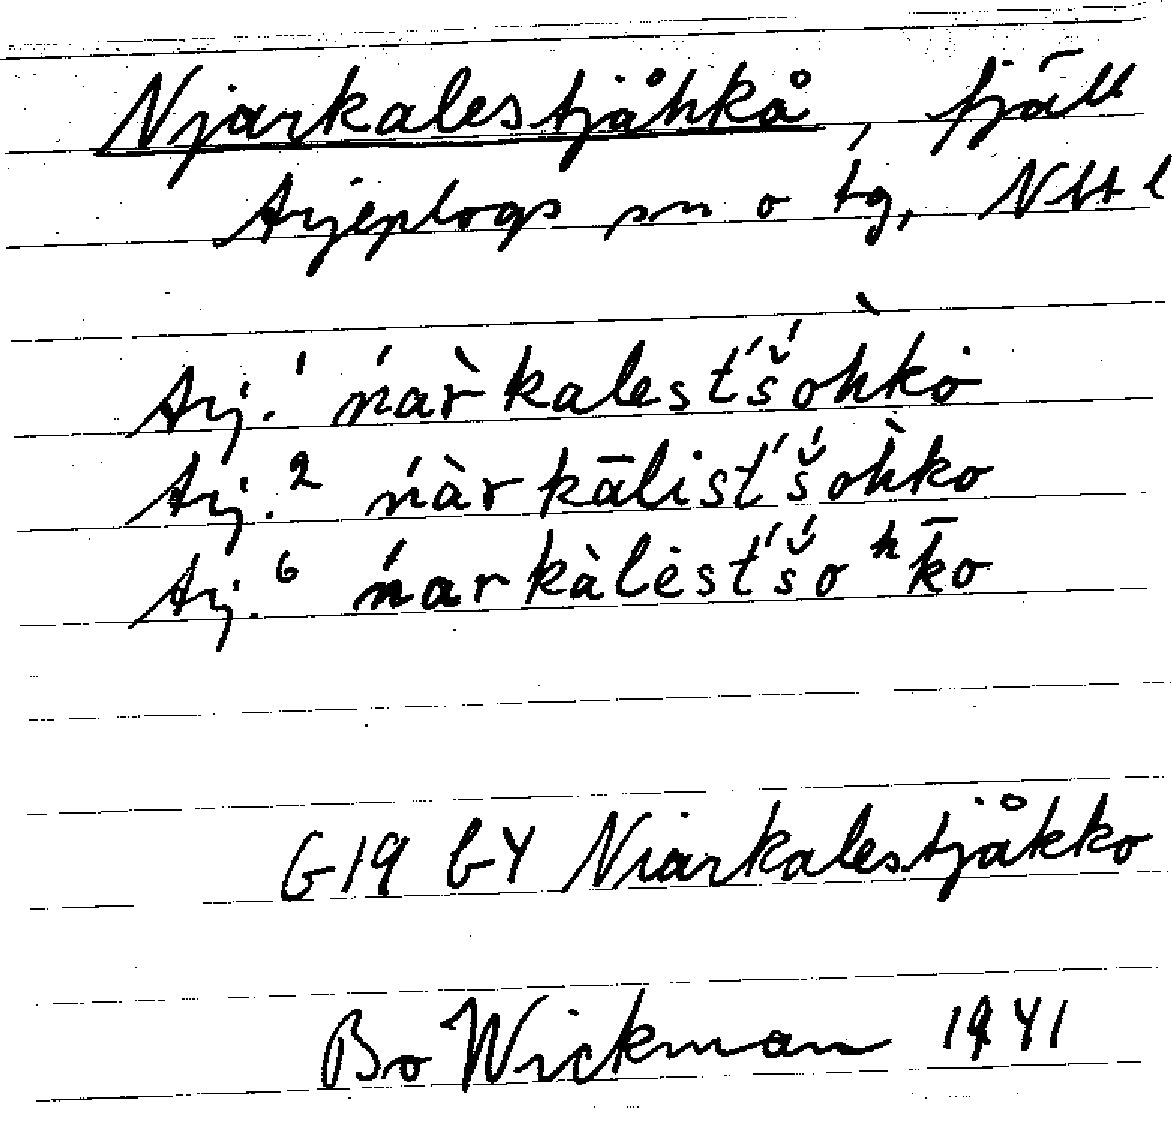 Njarkalestjåhkå, fjäll
Arjeplogs sn o tg, Nbtl
Arj.¹ ńar̀kalest́š́oh̀kȯ
Arj.² ńàrkālist́š́oh̀ko
Arj.⁶ ńarkàlėst́š́oʰk̄o
G19 b4 Niarkalestjåkko
Bo Wickman 1941